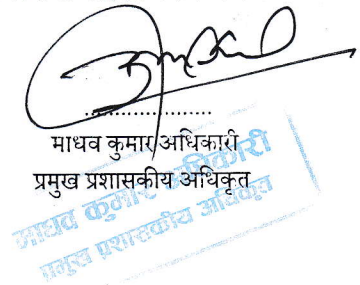 ....................
माधव कुमार अधिकारी
प्रमुख प्रशासकीय अधिकृत
माधव कुमार अधिकारी
प्रमुख प्रशासकीय अधिकृत